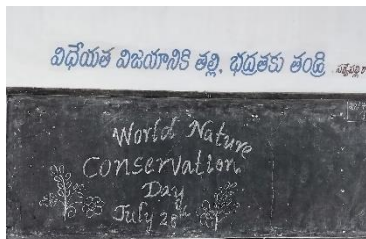 విధేయత విజయానికి తల్లి, భద్రతకు తండ్రి
World Nature
Conservation
Day
July 28th